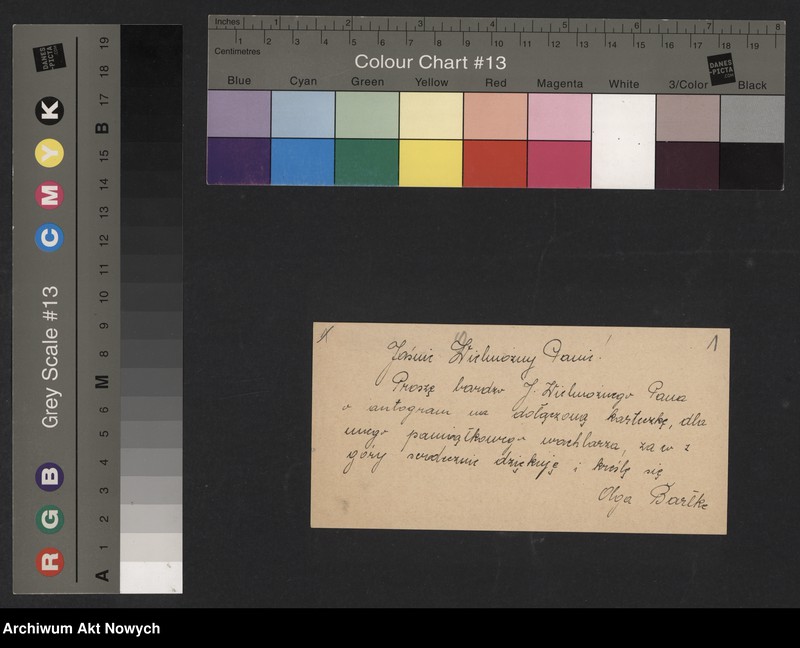 Inches 1 2 3 4 5 6 7 8
Centimetres 1 2 3 4 5 6 7 8 9 10 11 12 13 14 15 16 17 18 19
Colour Chart #13
DANES-PICTA.COM
Blue Cyan Green Yellow Red Magenta White 3/Color Black
DANES-PICTA.COM
Grey Scale #13
R G B C M Y K
A 1 2 3 4 5 6 M 8 9 10 11 12 13 14 15 B 17 18 19
1
Jaśnie Wielmożny Panie!
Proszę bardzo J. Wielmożnego Pana
o autogram na dołączoną karteczkę, dla
mego pamiątkowego wachlarza, za co z
góry serdecznie dziękuję i kreślę się
Olga
Archiwum Akt Nowych